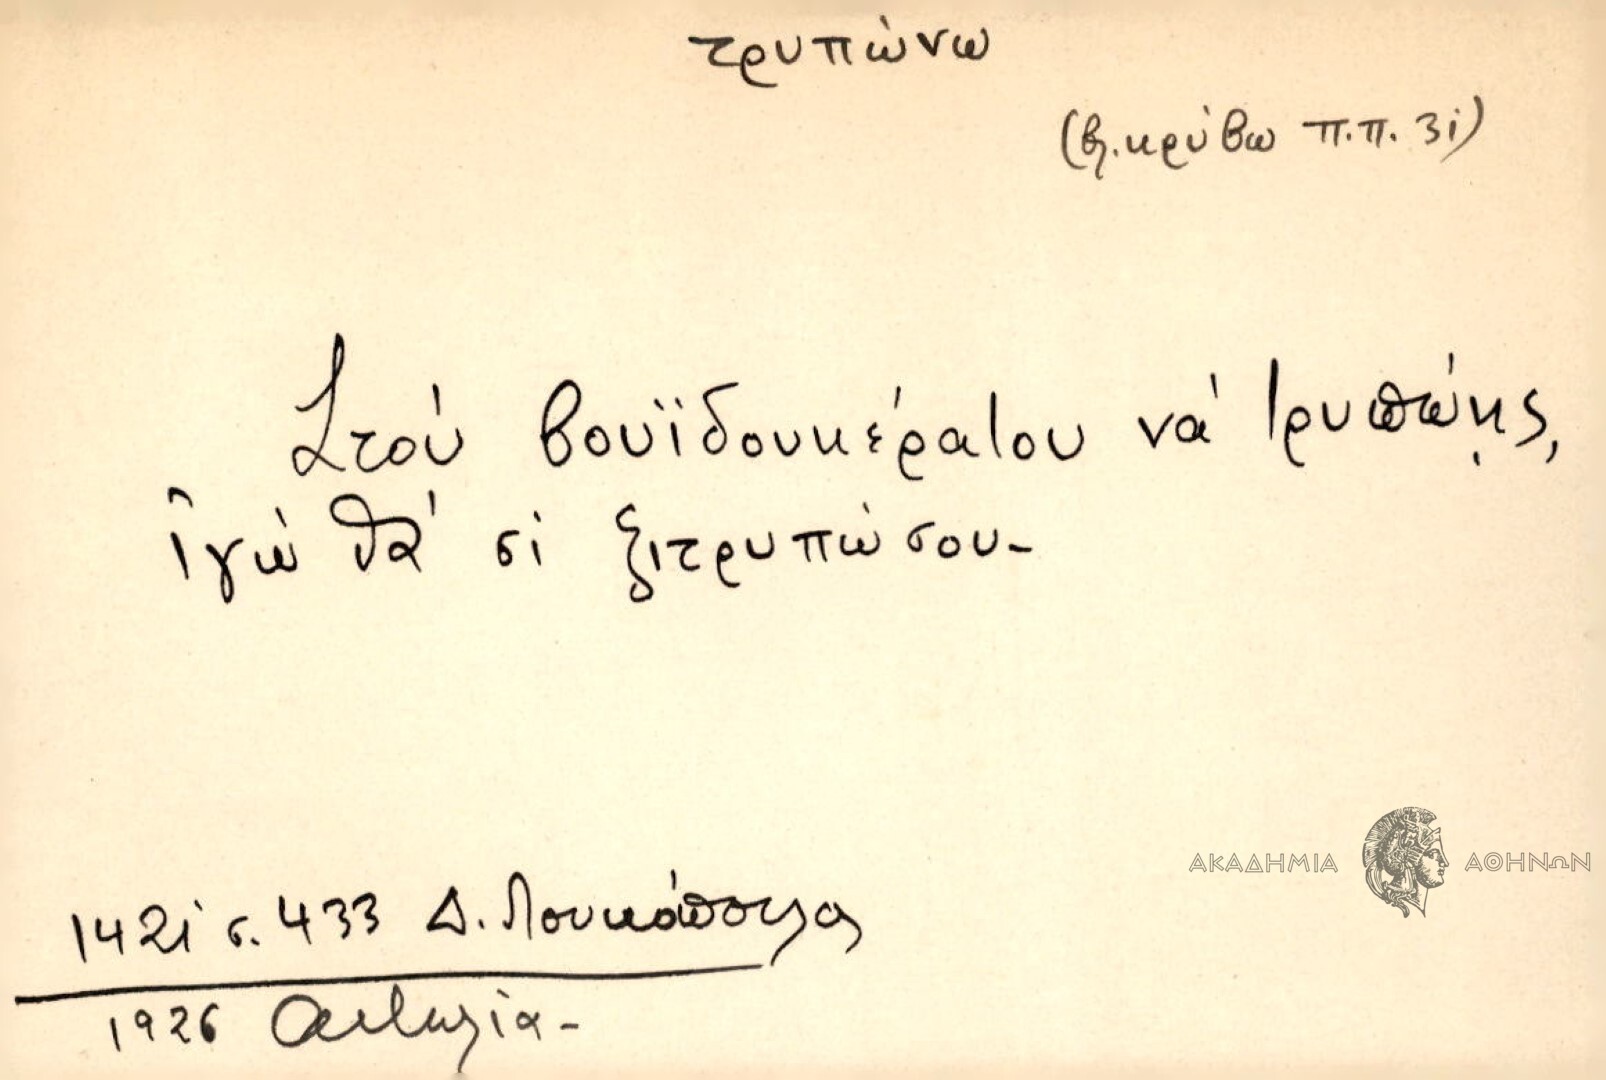 τρυπώνω
(βλ. κρύβω π.π. 3ι)
Στού βουϊδουκέρατου νά τρυπώης,
ἰγώ θά σί ξιτρυπώσου-
1421 σ. 433 Δ. Λουκόπουλος
1926 Αιτωλία-
ΑΚΑΔΗΜΙΑ ΑΘΗΝΩΝ